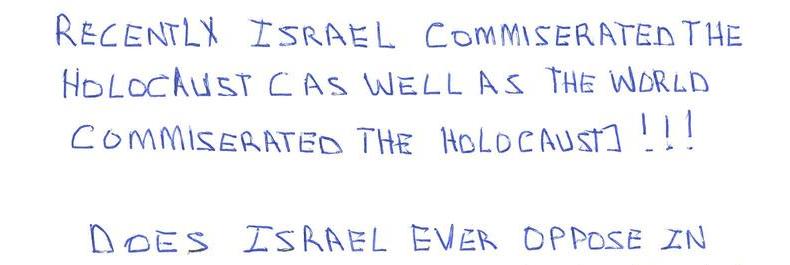 RECENTLY ISRAEL COMMISERATED THE
HOLOCAUST [AS WELL AS THE WORLD
COMMISERATED THE HOLOCAUST] !!!
DOES ISRAEL EVER OPPOSE IN